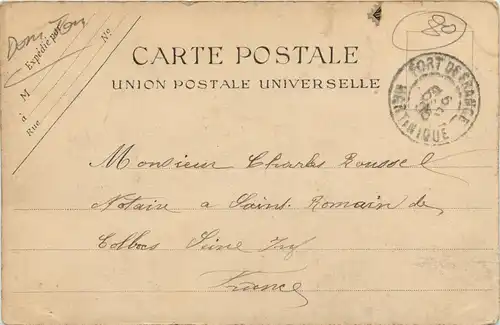 Dom Tom
80
Expédié par
No
M
à
Rue
CARTE POSTALE
UNION POSTALE UNIVERSELLE
FORT DE FRANCE
MARTINIQUE
Monsieur Charles Roussel
Notaire a Saint Romain de
Colbosc Seine Infr
France